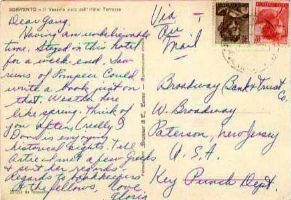 SORRENTO - Il Vesuvio visto dall'Hotel Terrazza
Dear Gang,
Having an unbelievable
time. Stayed in this hotel
for a week-end. Saw
ruins of Pompeii. Could
write a book just on
that. Weather here
like spring. Think of
you often. (really)
Dond is enjoying
historical sights. Tell
Artie I met a few Greeks
& sent her regards.
Regards to bookkeepers
& the fellows. Love,
Gloria
Via
Air
Mail
Broadway Bank & Trust
Co.
W. Broadway
Paterson, New Jersey
U.S.A.
Key Punch Dept.